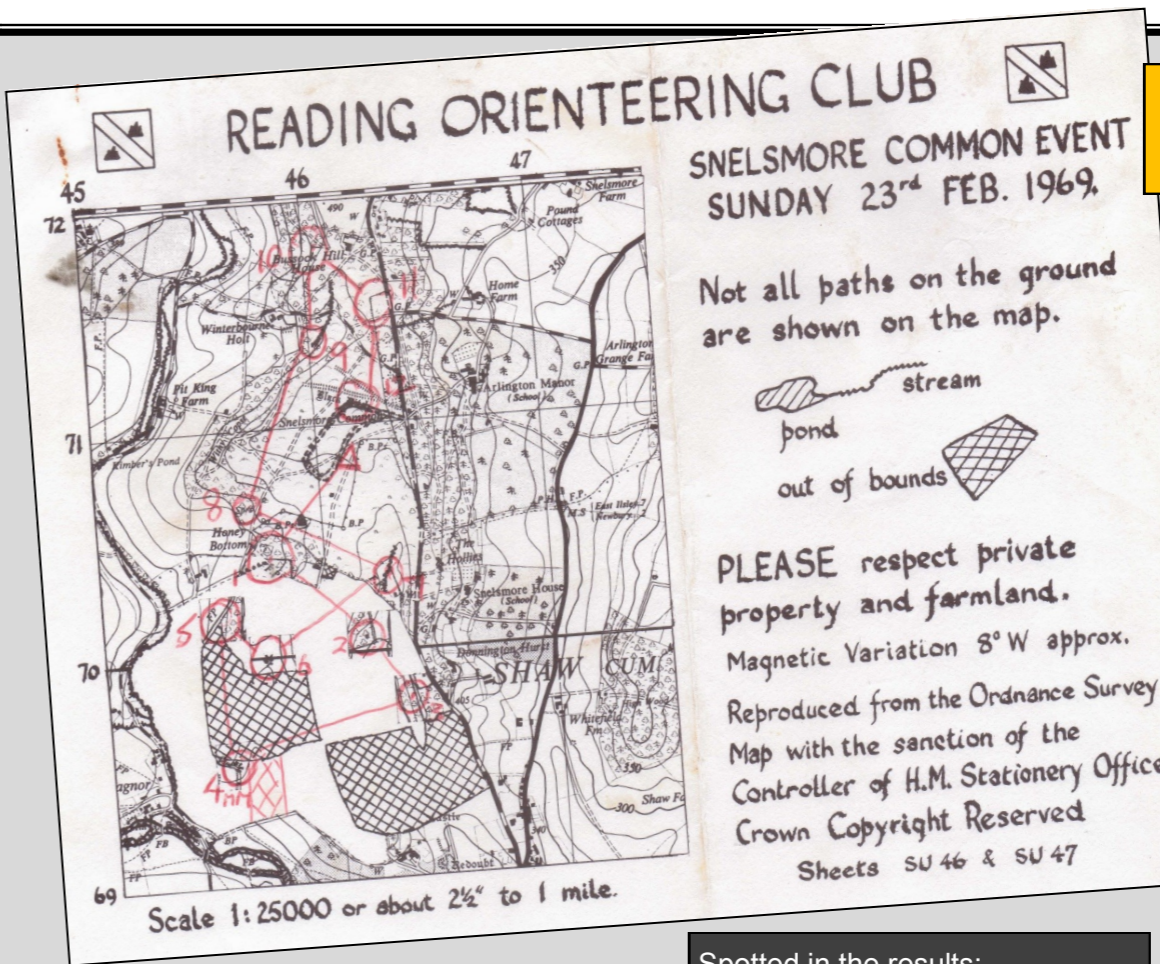 READING ORIENTEERING CLUB
SNELSMORE COMMON EVENT
SUNDAY 23rd FEB. 1969.
Not all paths on the ground
are shown on the map.
stream
pond
out of bounds
PLEASE respect private
property and farmland.
Magnetic Variation 8° W approx.
Reproduced from the Ordnance Survey
Map with the sanction of the
Controller of H.M. Stationery Office
Crown Copyright Reserved
Sheets SU 46 & SU 47
45
46
47
72
71
70
69
490
W
Snelsmore
Farm
Pound
Cottages
350
10
Bussock Hill
House
G.P.
11
W
Home
Farm
Winterbourne
Holt
9
G.P.
Arlington
Grange
G.P.
12
Arlington Manor
(School)
Pit King
Farm
Snelsmore
B.Ps
Kimber's Pond
8
B.P.
P.H.
F.P.
M.S
East Ilsley 7
Newbury 2
Honey
Bottom
The
Hollies
1
7
Snelsmore House
(School)
5
2
6
Donnington Hurst
SHAW
3
405
Whitefield
Fm
FP
350
300
Shaw
4
FB
BP
FP
W
Redoubt
340
Scale 1:25000 or about 2½" to 1 mile.
Spotted in the results: